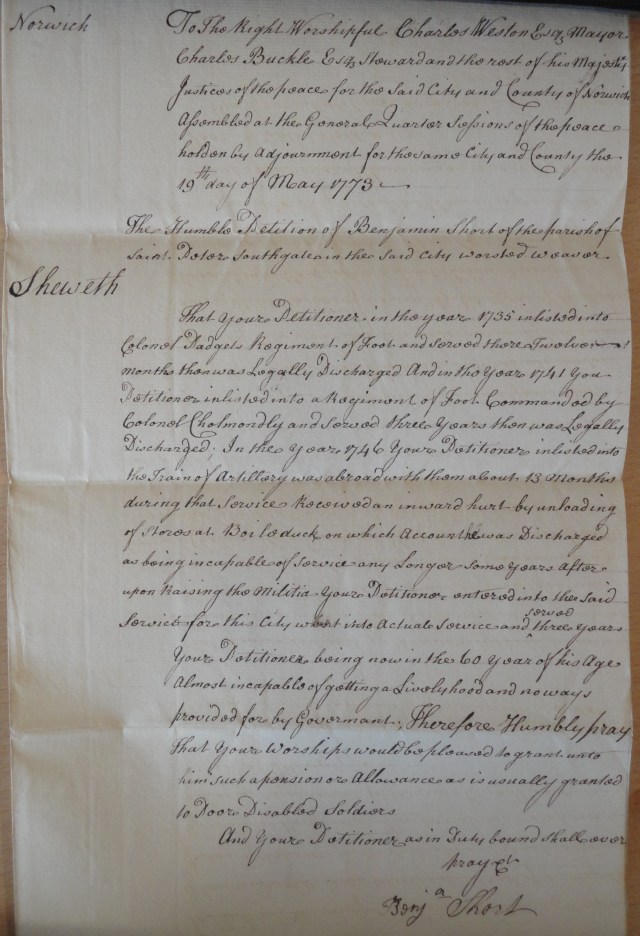 Norwich
To The Right Worshipful Charles Weston Esq. Mayor
Charles Buckle Esq. Steward and the rest of his Majestys
Justices of the peace for the Said City and County of Norwich
Assembled at the General Quarter Sessions of the peace
holden by Adjournment for the same City and County the
19th day of May 1773
The Humble Petition of Benjamin Short of the parish of
Saint Peter Southgate in the Said City worsted weaver
Sheweth
That Your Petitioner in the year 1735 inlisted into
Colonel Padgets Regiment of Foot and served there Twelve
months then was Legally Discharged And in the Year 1741 You
Petitioner inlisted into a Regiment of Foot Commanded by
Colonel Cholmondly and Served three Years then was Legally
Discharged. In the Year 1746 Your Petitioner inlisted into
the Train of Artillery was abroad with them about 13 Months
during that Service Received an inward hurt by unloading
of Stores at Boileduck on which Account he was Discharged
as being incapable of Service any Longer Some Years After
upon Raising the Militia Your Petitioner entered into the said
Service for this City went into Actuale Service and served three Years
Your Petitioner being now in the 60 Year of his Age
Almost incapable of getting a Livelyhood and no ways
provided for by Goverment; Therefore Humbly pray
that Your Worships would be pleased to grant unto
him such a pension or Allowance as is usually granted
to Poor Disabled Soldiers
And Your Petitioner as in Duty bound shall ever
pray &c
Benja Short